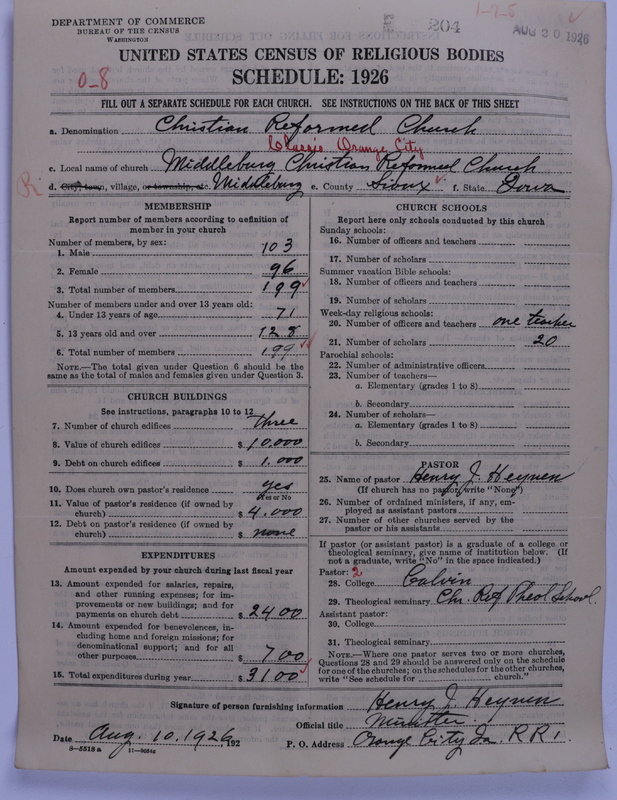 DEPARTMENT OF COMMERCE
BUREAU OF THE CENSUS
WASHINGTON
E 204
1-7-5
AUG 20 1926
UNITED STATES CENSUS OF RELIGIOUS BODIES
SCHEDULE: 1926
0-8
FILL OUT A SEPARATE SCHEDULE FOR EACH CHURCH. SEE INSTRUCTIONS ON THE BACK OF THIS SHEET
a. Denomination Christian Reformed Church
Classis Orange City
c. Local name of church Middleburg Christian Reformed Church
d. City, town, village, or township, etc. Middleburg e. County Sioux f. State Iowa
MEMBERSHIP
Report number of members according to definition of
member in your church
Number of members, by sex:
1. Male 103
2. Female 96
3. Total number of members 199
Number of members under and over 13 years old:
4. Under 13 years of age 71
5. 13 years old and over 128
6. Total number of members 199
NOTE.—The total given under Question 6 should be the
same as the total of males and females given under Question 3.
CHURCH BUILDINGS
See instructions, paragraphs 10 to 12
7. Number of church edifices three
8. Value of church edifices $ 10,000
9. Debt on church edifices $ 1,000
10. Does church own pastor's residence yes
Yes or No
11. Value of pastor's residence (if owned by
church) $ 4,000
12. Debt on pastor's residence (if owned by
church) $ none
EXPENDITURES
Amount expended by your church during last fiscal year
13. Amount expended for salaries, repairs,
and other running expenses; for im-
provements or new buildings; and for
payments on church debt $ 2400
14. Amount expended for benevolences, in-
cluding home and foreign missions; for
denominational support; and for all
other purposes $ 700
15. Total expenditures during year $ 3100
CHURCH SCHOOLS
Report here only schools conducted by this church
Sunday schools:
16. Number of officers and teachers
17. Number of scholars
Summer vacation Bible schools:
18. Number of officers and teachers
19. Number of scholars
Week-day religious schools:
20. Number of officers and teachers one teacher
21. Number of scholars 20
Parochial schools:
22. Number of administrative officers
23. Number of teachers—
a. Elementary (grades 1 to 8)
b. Secondary
24. Number of scholars—
a. Elementary (grades 1 to 8)
b. Secondary
PASTOR
25. Name of pastor Henry J. Heynen
(If church has no pastor, write "None")
26. Number of ordained ministers, if any, em-
ployed as assistant pastors
27. Number of other churches served by the
pastor or his assistants
If pastor (or assistant pastor) is a graduate of a college or
theological seminary, give name of institution below. (If
not a graduate, write "No" in the space indicated.)
Pastor: 2
28. College Calvin
29. Theological seminary Chr. Ref Theol School.
Assistant pastor:
30. College
31. Theological seminary
NOTE.—Where one pastor serves two or more churches,
Questions 28 and 29 should be answered only on the schedule
for one of the churches; on the schedules for the other churches,
write "See schedule for church."
Signature of person furnishing information Henry J. Heynen
Official title Minister.
Date Aug. 10, 1926, 192 P. O. Address Orange City Ia. R R 1.
8—5518 a 11—9084a